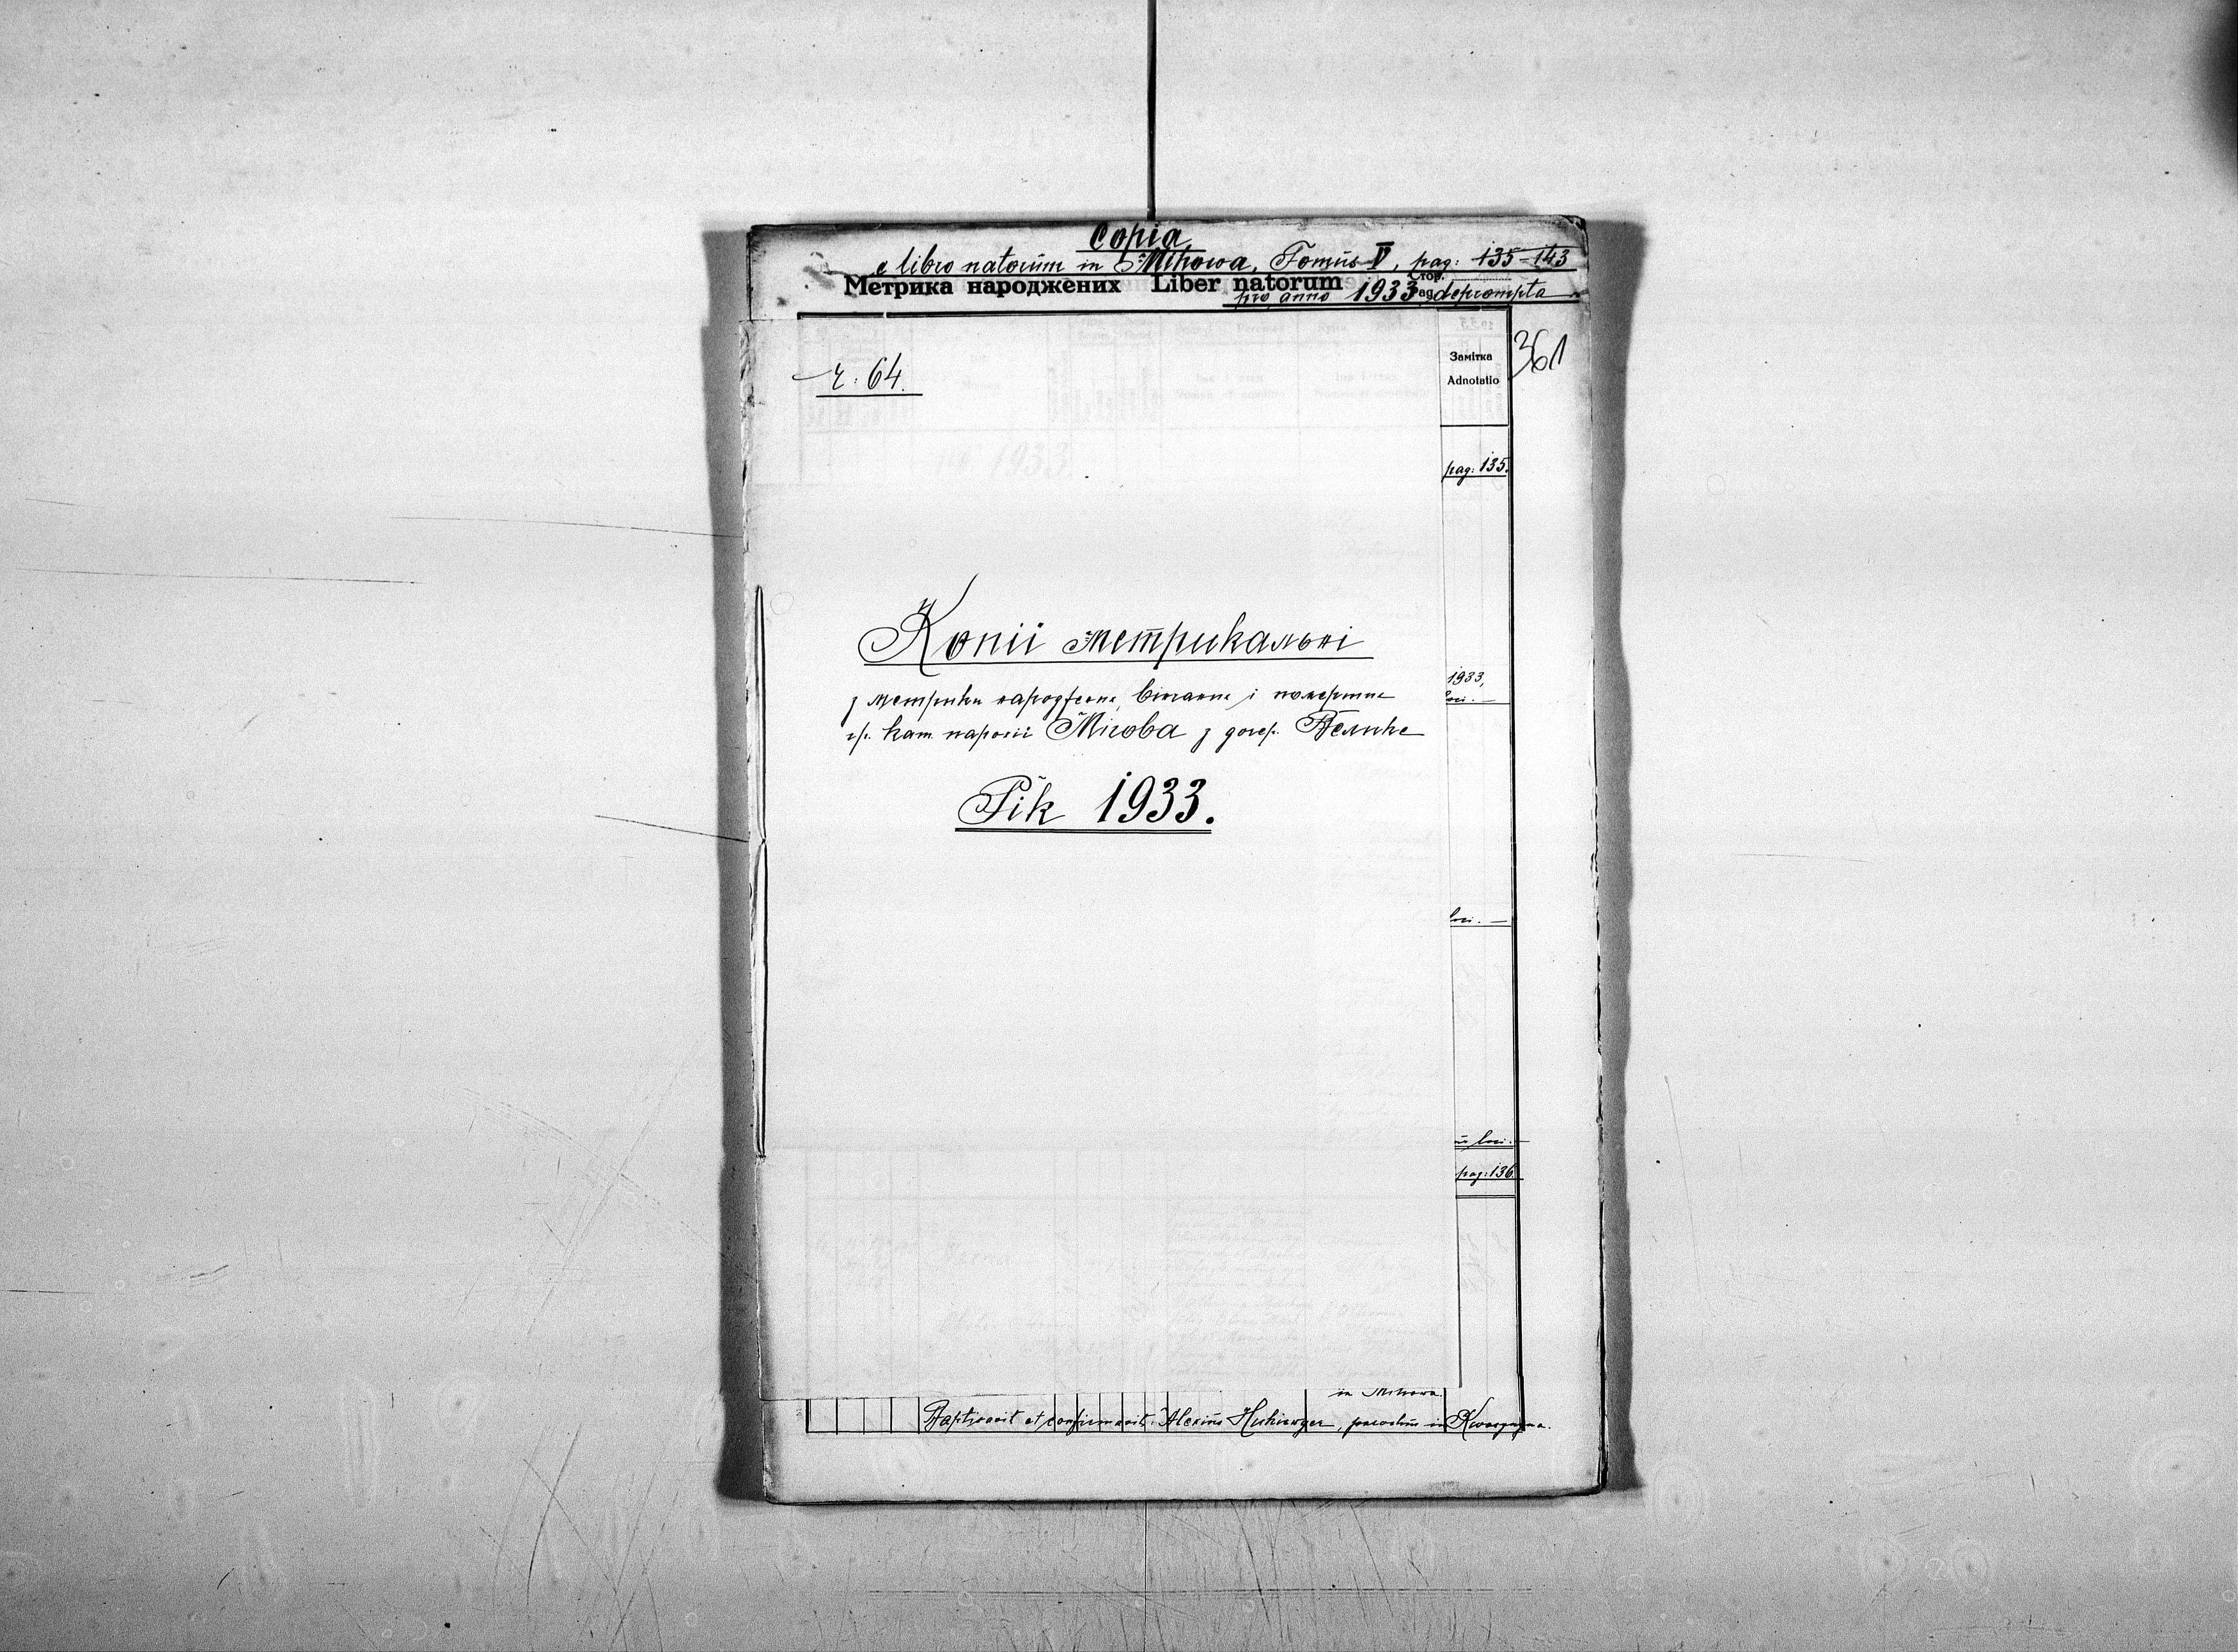 Copia
e libro natorum in Mihowa, Tomus V, pag: 135-143
Метрика народжених Liber natorum Стор. Pag.
pro anno 1933 deprompta
361
ч: 64.
Замітка
Adnotatio
pag: 135.
Копії метрикальні
з метрики народжених, вінчаних і померших
гр. кат. парохії Міхова з дочер.
Рік 1933.
1933,
loci. —
loci. —
loci. —
pag: 136
in Mihowa.
Baptisavit et confirmavit: Alexius parochus in